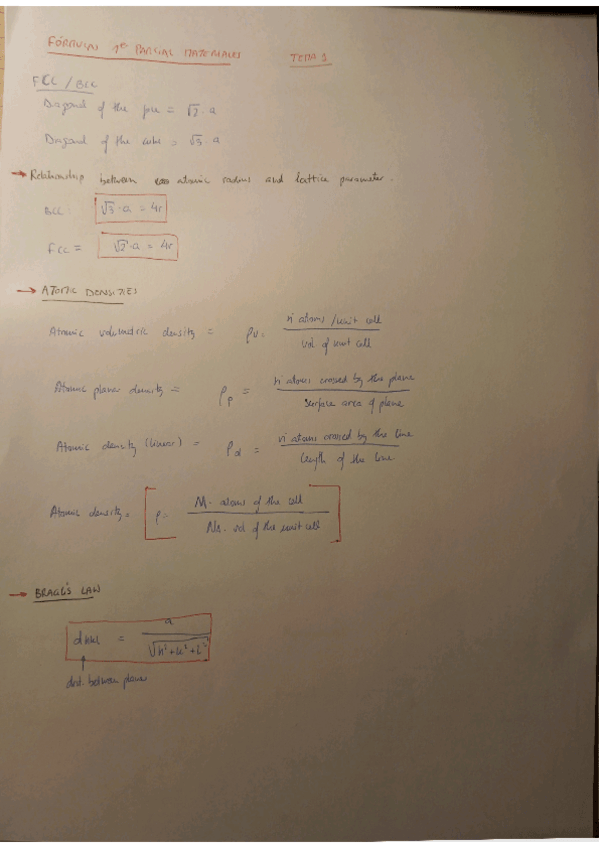 FÓRMULAS 1er PARCIAL MATERIALES TEMA 1
FCC / BCC
Diagonal of the face = √2 · a
Diagonal of the cube = √3 · a
→ Relationship between atomic radius and lattice parameter.
BCC √3 · a = 4r
FCC = √2 · a = 4r
→ ATOMIC DENSITIES
Atomic volumetric density = ρv = nº atoms / unit cell
vol of unit cell
Atomic planar density = ρp = nº atoms crossed by the plane
surface area of plane
Atomic density (linear) = ρd = nº atoms crossed by the line
length of the line
Atomic density = ρ = M · atoms of the cell
Na · vol of the unit cell
→ BRAGG'S LAW
dhkl = a
√h² + k² + l²
dist. between plane